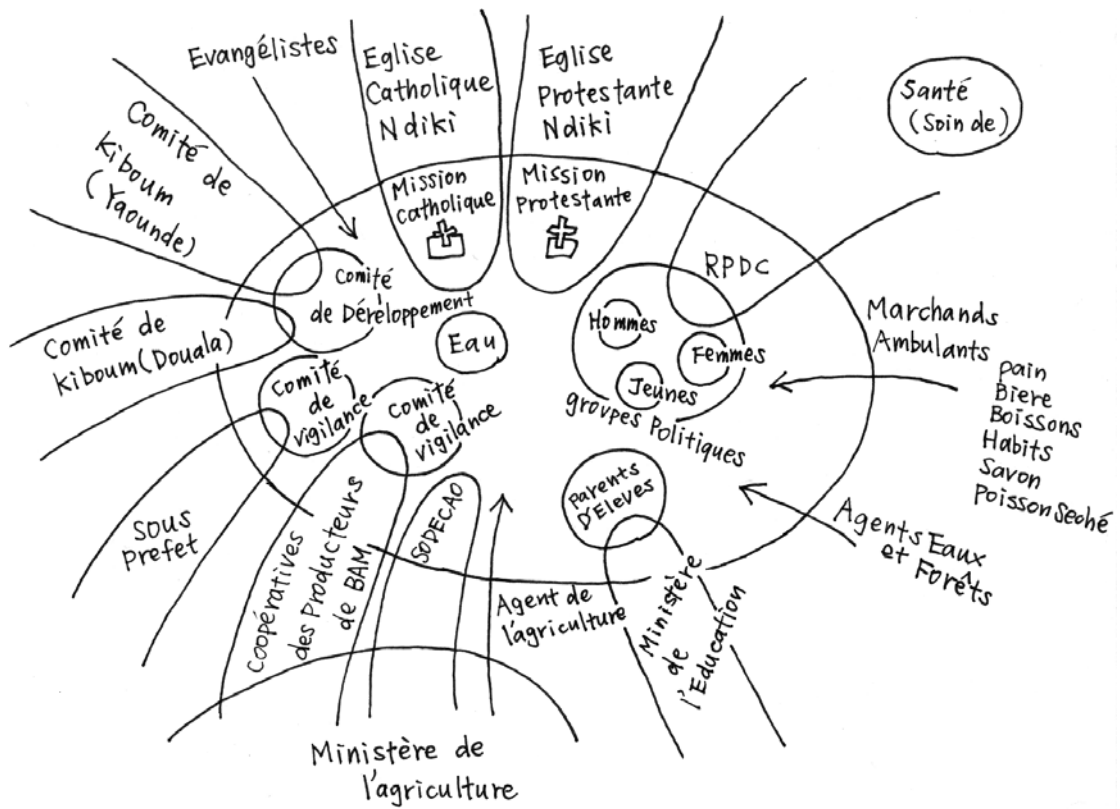 Evangélistes
Eglise
Catholique
Ndiki
Eglise
Protestante
Ndiki
Santé
(Soin de)
Comité de
Kiboum
(Yaounde)
Mission
Catholique
Mission
Protestante
RPDC
Comité
de Déreloppement
Eau
Hommes
Femmes
Jeunes
groupes Politiques
Marchands
Ambulants
pain
Biere
Boissons
Habits
Savon
Poisson Seohé
Comité de
Kiboum (Douala)
Comité
de
vigilance
Comité
de
vigilance
Parents
D'Eleves
Agents Eaux
et Forêts
Sous
Prefet
Coopératives
des Producteurs
de BAM
SODECAO
Agent de
l'agriculture
Ministère
de
l'Education
Ministère de
l'agriculture